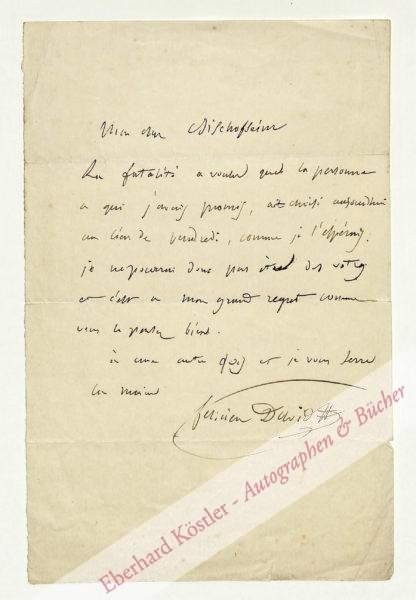 Mon cher Bischoffheim
La fatalité a voulu que la personne
a qui j'avais promis, ait choisi aujourdhui
au lieu de vendredi, comme je l'espérais.
je ne pourrai donc pas être des votres
et c'est a mon grand regret comme
vous le pensez bien.
à une autre fois et je vous serre
la main
félicien David
Eberhard Köstler - Autographen & Bücher